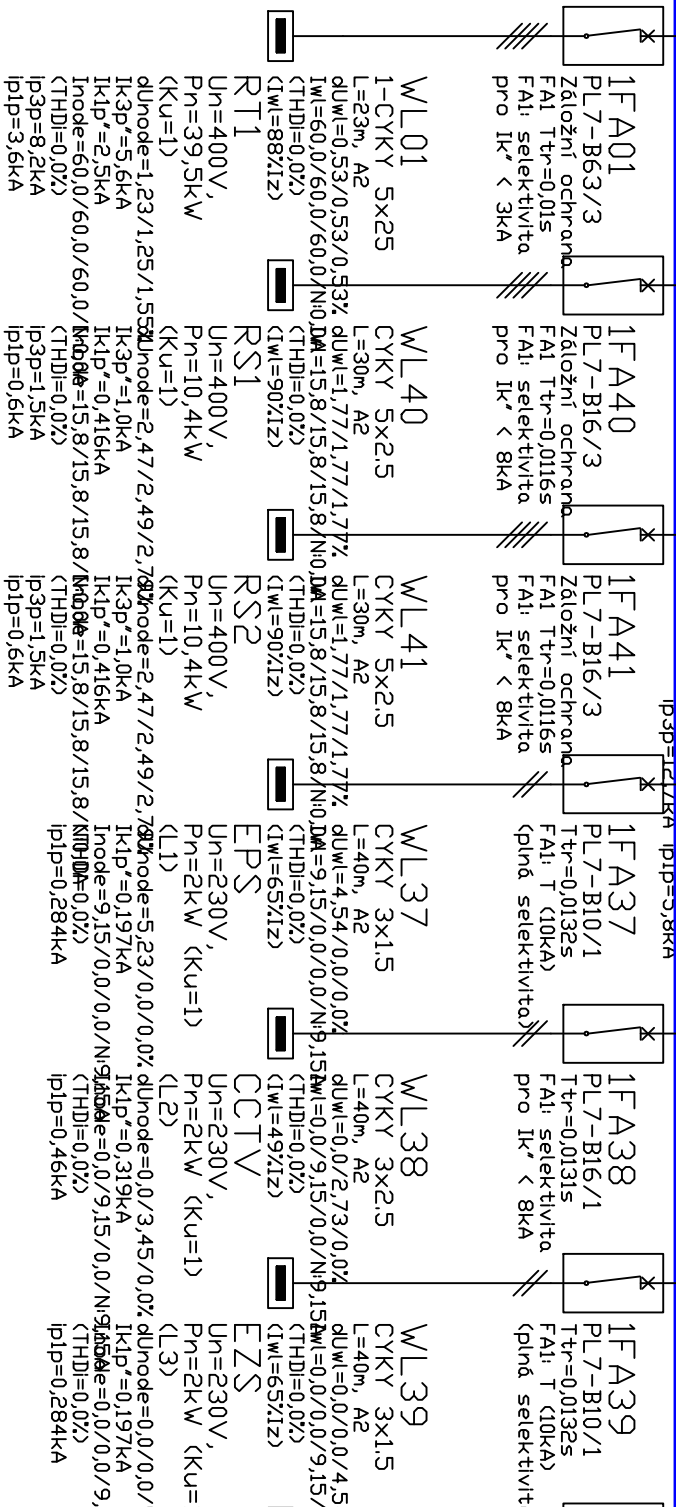 ip3p=12,7kA ip1p=5,8kA
1FA01
PL7-B63/3
Záložní ochrana
FA1 Ttr=0,01s
FA1: selektivita
pro Ik" < 3kA
WL01
1-CYKY 5x25
L=23m, A2
dUwl=0,53/0,53/0,53%
Iwl=60,0/60,0/60,0/N:0,0A
(THDi=0,0%)
(Iwl=88%Iz)
RT1
Un=400V,
Pn=39,5kW
(Ku=1)
dUnode=1,23/1,25/1,55%
Ik3p"=5,6kA
Ik1p"=2,5kA
Inode=60,0/60,0/60,0/N:0,0A
(THDi=0,0%)
ip3p=8,2kA
ip1p=3,6kA
1FA40
PL7-B16/3
Záložní ochrana
FA1 Ttr=0,0116s
FA1: selektivita
pro Ik" < 8kA
WL40
CYKY 5x2.5
L=30m, A2
dUwl=1,77/1,77/1,77%
Iwl=15,8/15,8/15,8/N:0,0A
(THDi=0,0%)
(Iwl=90%Iz)
RS1
Un=400V,
Pn=10,4kW
(Ku=1)
dUnode=2,47/2,49/2,79%
Ik3p"=1,0kA
Ik1p"=0,416kA
Inode=15,8/15,8/15,8/N:0,0A
(THDi=0,0%)
ip3p=1,5kA
ip1p=0,6kA
1FA41
PL7-B16/3
Záložní ochrana
FA1 Ttr=0,0116s
FA1: selektivita
pro Ik" < 8kA
WL41
CYKY 5x2.5
L=30m, A2
dUwl=1,77/1,77/1,77%
Iwl=15,8/15,8/15,8/N:0,0A
(THDi=0,0%)
(Iwl=90%Iz)
RS2
Un=400V,
Pn=10,4kW
(Ku=1)
dUnode=2,47/2,49/2,79%
Ik3p"=1,0kA
Ik1p"=0,416kA
Inode=15,8/15,8/15,8/N:0,0A
(THDi=0,0%)
ip3p=1,5kA
ip1p=0,6kA
1FA37
PL7-B10/1
Ttr=0,0132s
FA1: T (10kA)
(plná selektivita)
WL37
CYKY 3x1.5
L=40m, A2
dUwl=4,54/0,0/0,0%
Iwl=9,15/0,0/0,0/N:9,15A
(THDi=0,0%)
(Iwl=65%Iz)
EPS
Un=230V,
Pn=2kW (Ku=1)
(L1)
dUnode=5,23/0,0/0,0%
Ik1p"=0,197kA
Inode=9,15/0,0/0,0/N:9,15A
(THDi=0,0%)
ip1p=0,284kA
1FA38
PL7-B16/1
Ttr=0,0131s
FA1: selektivita
pro Ik" < 8kA
WL38
CYKY 3x2.5
L=40m, A2
dUwl=0,0/2,73/0,0%
Iwl=0,0/9,15/0,0/N:9,15A
(THDi=0,0%)
(Iwl=49%Iz)
CCTV
Un=230V,
Pn=2kW (Ku=1)
(L2)
dUnode=0,0/3,45/0,0%
Ik1p"=0,319kA
Inode=0,0/9,15/0,0/N:9,15A
(THDi=0,0%)
ip1p=0,46kA
1FA39
PL7-B10/1
Ttr=0,0132s
FA1: T (10kA)
(plná selektivit
WL39
CYKY 3x1.5
L=40m, A2
dUwl=0,0/0,0/4,5
Iwl=0,0/0,0/9,15/
(THDi=0,0%)
(Iwl=65%Iz)
EZS
Un=230V,
Pn=2kW (Ku=
(L3)
dUnode=0,0/0,0/
Ik1p"=0,197kA
Inode=0,0/0,0/9,
(THDi=0,0%)
ip1p=0,284kA